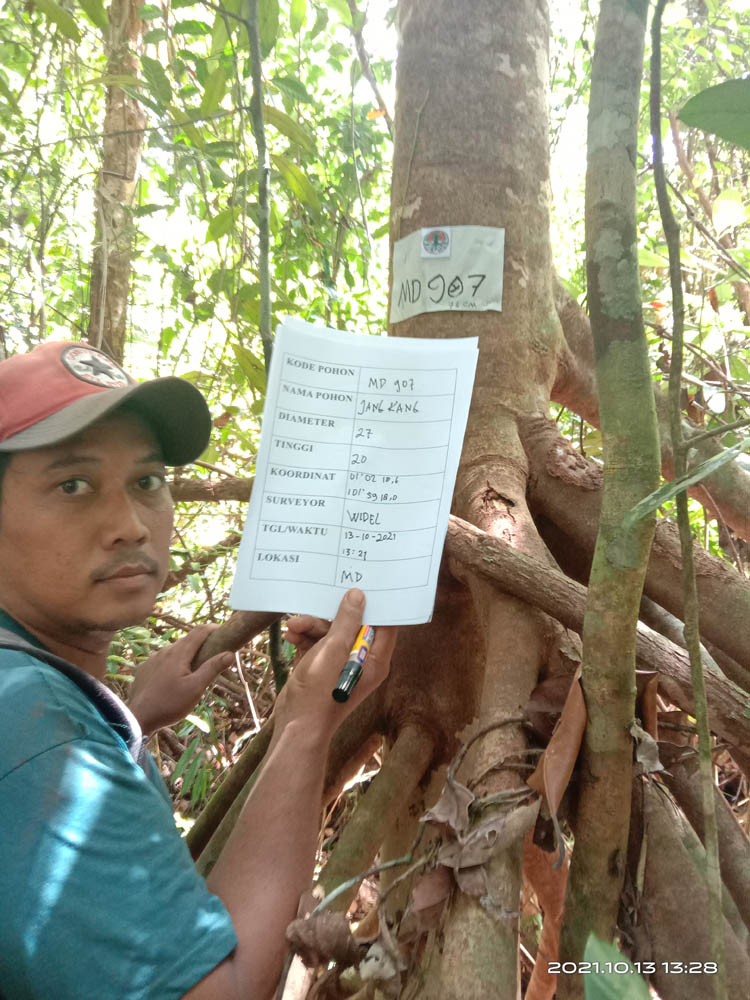 MD 907
76 CM
KODE POHON MD 907
NAMA POHON JANG KANG
DIAMETER 27
TINGGI 20
KOORDINAT 01° 02 18,6
101° 59 18,0
SURVEYOR WIDEL
TGL/WAKTU 13-10-2021
13:21
LOKASI MD
2021.10.13 13:28